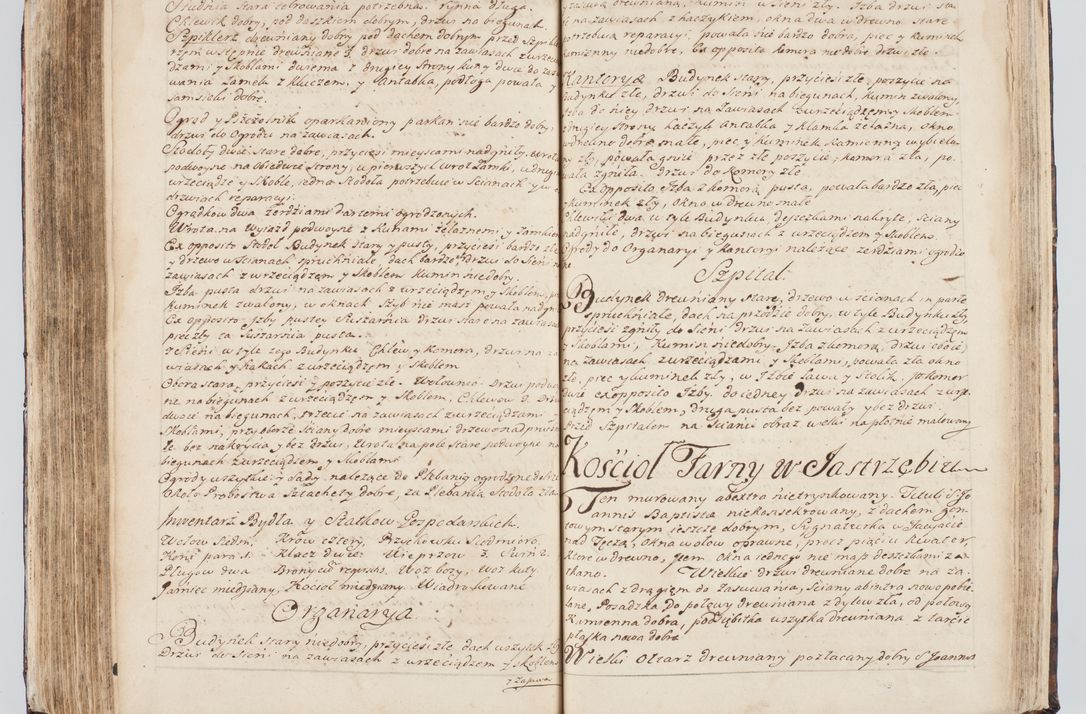 Studnia stara cebrowania potrzebna. rynna długa.
Chlewik dobry, pod daszkiem dobrym, drzwi na biegunach.
Szpiklerz drewniany dobry pod dachem dobrym przed Szpikle
rzym wstępnie drewniane 3 drzwi dobre na zawiasach z wrzec
dzami y skoblami dwiema z drugiey strony kuny dwie do zasu
wania zamela z kluczem, y antabka, podłoga powała y
sąmsieki dobre.
Ogrod y Pszczolnik oparkaniony parkan nie bardzo dobry,
drzwi do Ogrodu na zawiasach.
Stodoły dwie stare dobre, przyciesi mieyscami nadgniły. wrota
podwoyne na obiedwie strony, u pierwszych wrot zamki, u drugich
wrzeciądze y skoble, iedna stodoła potrzebuie w scianach y w
drzwiach reparacyi.
Ogrodkow dwa żerdziami dartemi ogrodzonych.
Wrota na wyiazd podwoyne z kunami żelaznemi y zamkiem
Ex opposito Stodoł Budynek stary y pusty, przyciesi bardzo złe
y drzewo w scianach spruchniałe, dach bardzo drzwi do Sieni na
zawiasach z wrzeciądzem y skoblem kumin niedobry.
Izba pusta drzwi na zawiasach z wrzeciądzem y skoblem, pi
kuminek zwalony, w oknach szyb nie masz powała nadgni
Ex opposito Izby pustey Piekarnia drzwi stare na zawiasach
piec zły ta suszarnia pusta.
z Sieni w tyle tego Budynku Chlew y komora, drzwi na za
wiasach y hakach z wrzeciądzem y skoblem
Obora stara, przyciesi y poszycie złe. Wołownia drzwi podwoy
ne na biegunach z wrzeciądzem y skoblem, Chlewow 3. Drzwi
dwoie na biegunach, trzecie na zawiasach z wrzeciądzami y
skoblami, przy oborze sciany dobre mieyscami drzewo nadpruchnia
łe bez nakrycia y bez drzwi. Wrota na pole stare podwoyne na
biegunach z wrzeciądzem y skoblami
Ogrody wszystkie y sady należące do Plebanij ogrodzone dobrze
Około Probostwa Sztachety dobre, za Plebanią stodoła zła.
Inwentarz Bydła y Statkow Gospodarskich.
Wołow siedm, Krow cztery, Przychowku siedmioro,
Koni para 1. Klacz dwie Wieprzow 3. Swin 2.
Pługow dwa Brony Wóz bosy, Wóz kuty
Garniec miedziany, Kocioł miedziany. Wiadro kowane
Organarya
Budynek stary niedobry, przyciesi złe, dach wszytek zły
Drzwi do Sieni na zawiasach z wrzeciądzem y skoblem
drewniana, kumin w Sieni zły. Izba drzwi sta
re na zawiasach z haczykiem, okna dwa w drewno stare
potrzebuią reparacyi, powała nie bardzo dobra, piec y kuminek
kamienny niedobre, Ex opposito komora niedobre drzwi złe.
Kantorya Budynek stary, przyciesi złe, poszycie na
budynku złe, drzwi do Sieni na biegunach, kumin zwalony,
Izba do niey drzwi na zawiasach z wrzeciądzem y skoblem
z drugiey strony haczyk antabka y klamka żelazna, okno
w drewno dobre małe, piec y kuminek kamienny wybielo
ny zły, powała gniie przez złe poszycie; komora zła, po
wała zgniła. drzwi do komory złe.
Ex opposito Izba z komorą pusta, powała bardzo zła, piec
y kuminek zły, okno w drewno małe
Chlewiki dwa w tyle Budynku deszczkami nakryte, sciany
nadgniłe, drzwi na biegunach z wrzeciądzem y skoblem
Ogrody do Organaryi y kantoryi należące żerdziami ogrodzo
ne
Szpital
Budynek drewniany stary, drzewo w scianach in parte
spruchniałe, dach na przodzie dobry, w tyle Budynku zły,
przyciesi zgniły do Sieni drzwi na zawiasach z wrzeciądzem
y skoblami, Kumin niedobry. Izba z komorą, drzwi oboie
na zawiasach z wrzeciądzami y skoblami, powała zła okno
złe, piec y kuminek zły, w Izbie ława y stolik, z komor
dwie ex opposito Izby. do iedney drzwi na zawiasach z wrze
ciądzem y skoblem, druga pusta bez powały y bez drzwi.
Przed Szpitalem na scianie obraz wielki na płotnie malowany
Kościoł Farny w Jastrzębiu
Ten murowany abextra nietynkowany. Tituli S. Jo
annis Baptistæ niekonsekrowany, z dachem gon
towym starym ieszcze dobrym, Sygnaturka w
nad Tęczą, Okna w ołow oprawne, procz pięciu kwater,
które w drewno, item Okna iednego nie masz deszczkami za
tkano. Wielkie drzwi drewniane dobre na za
wiasach z drągiem do zasuwania, sciany abintra nowo pobie
lane, Posadzka do połowy drewniana z dylow zła, od połowy
kamienna dobra, podsiębitka wszytka drewniana z tarcic
płaska nowa dobra
Wielki Ołtarz drewniany pozłacany dobry S. Joannis